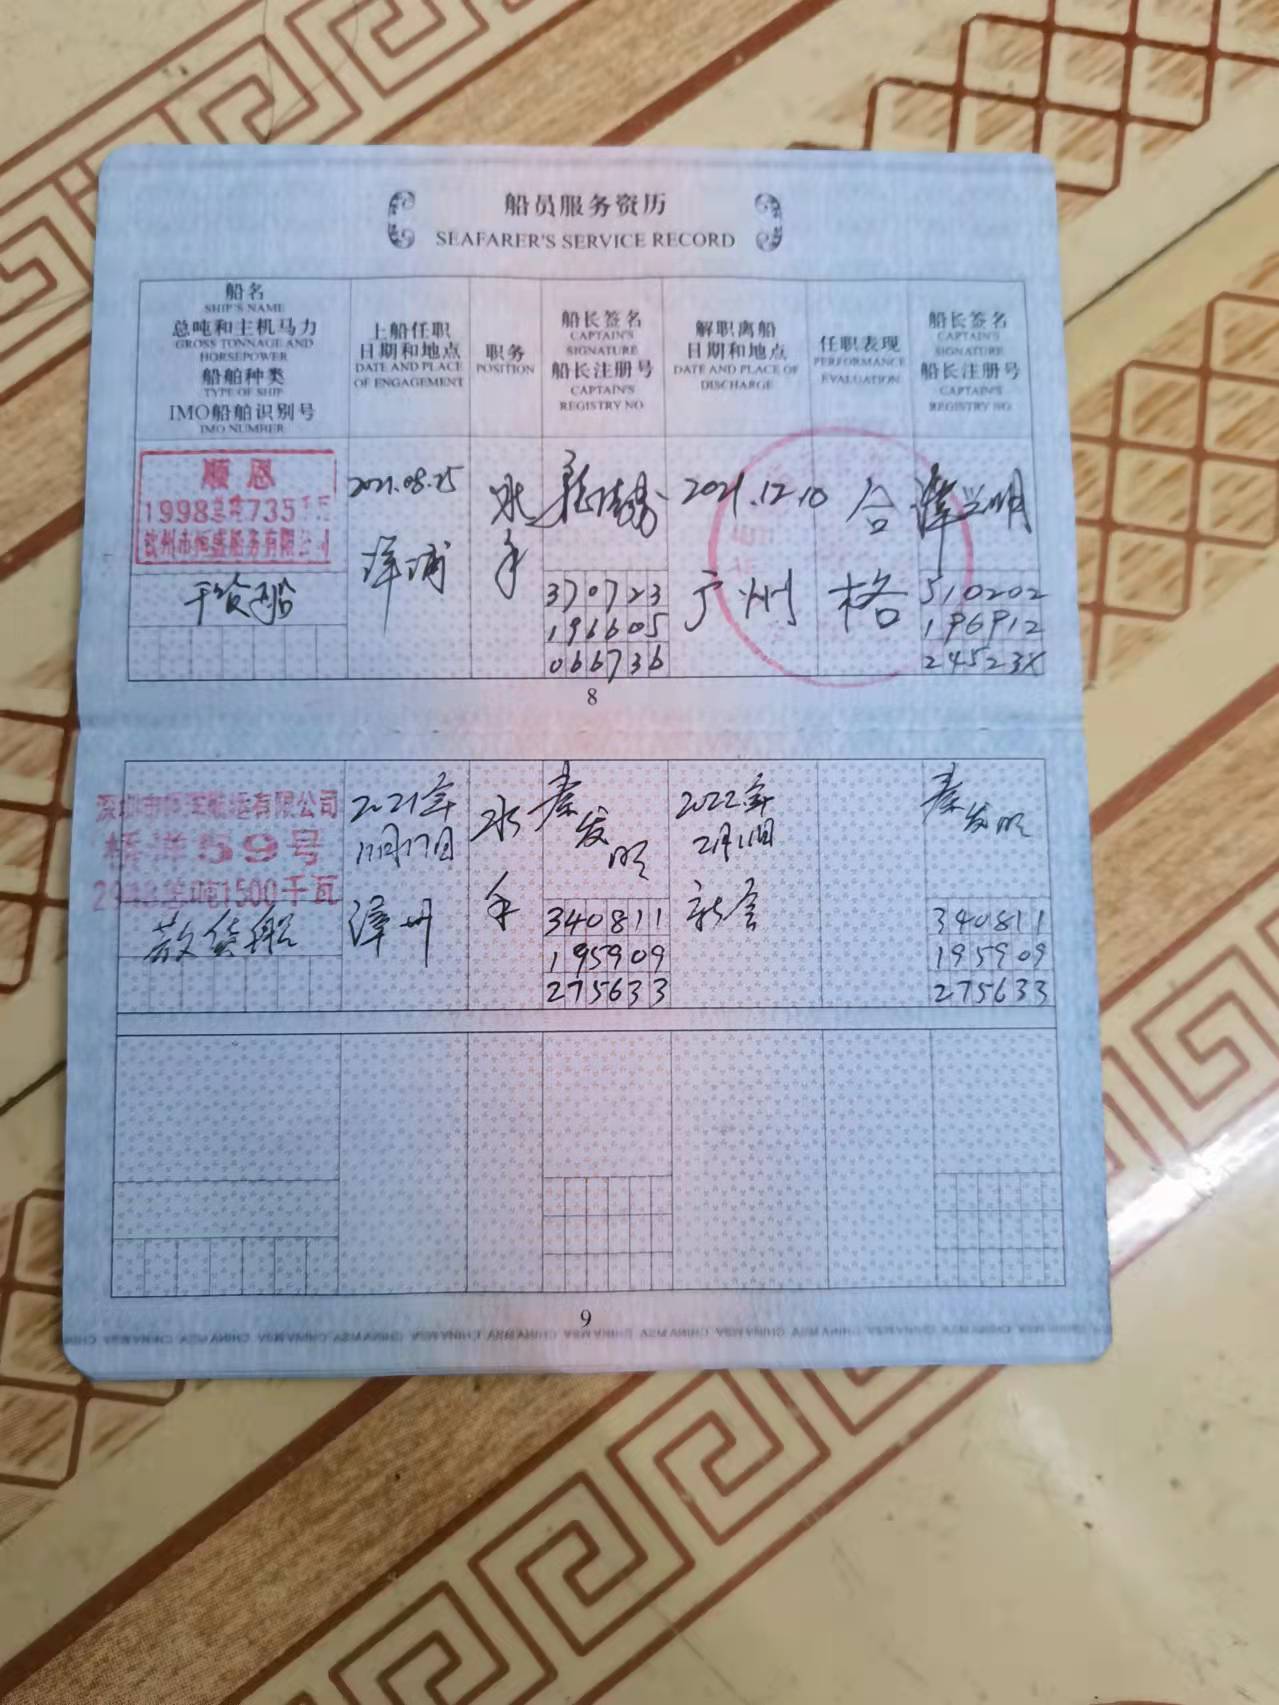 船员服务资历
SEAFARER'S SERVICE RECORD
船名
SHIP'S NAME
总吨和主机马力
GROSS TONNAGE AND
HORSEPOWER
船舶种类
TYPE OF SHIP
IMO船舶识别号
IMO NUMBER
上船任职
日期和地点
DATE AND PLACE
OF ENGAGEMENT
职务
POSITION
船长签名
CAPTAIN'S
SIGNATURE
船长注册号
CAPTAIN'S
REGISTRY NO
解职离船
日期和地点
DATE AND PLACE OF
DISCHARGE
任职表现
PERFORMANCE
EVALUATION
船长签名
CAPTAIN'S
SIGNATURE
船长注册号
CAPTAIN'S
REGISTRY NO
顺恩
1998总吨735千瓦
钦州市恒盛船务有限公司
干货船
2021.08.25
洋浦
水
手
370723
196605
066736
2021.12.10
广州
合
格
谭兴明
510202
196912
24523X
8
有限公司
桥洋59号
总吨1500千瓦
散货船
2021年
11月17日
漳州
水
手
秦
发
明
340811
195909
275633
2022年
新会
秦
发明
340811
195909
275633
9
CHINA MSA CHINA MSA CHINA MSA CHINA MSA CHINA MSA CHINA MSA CHINA MSA